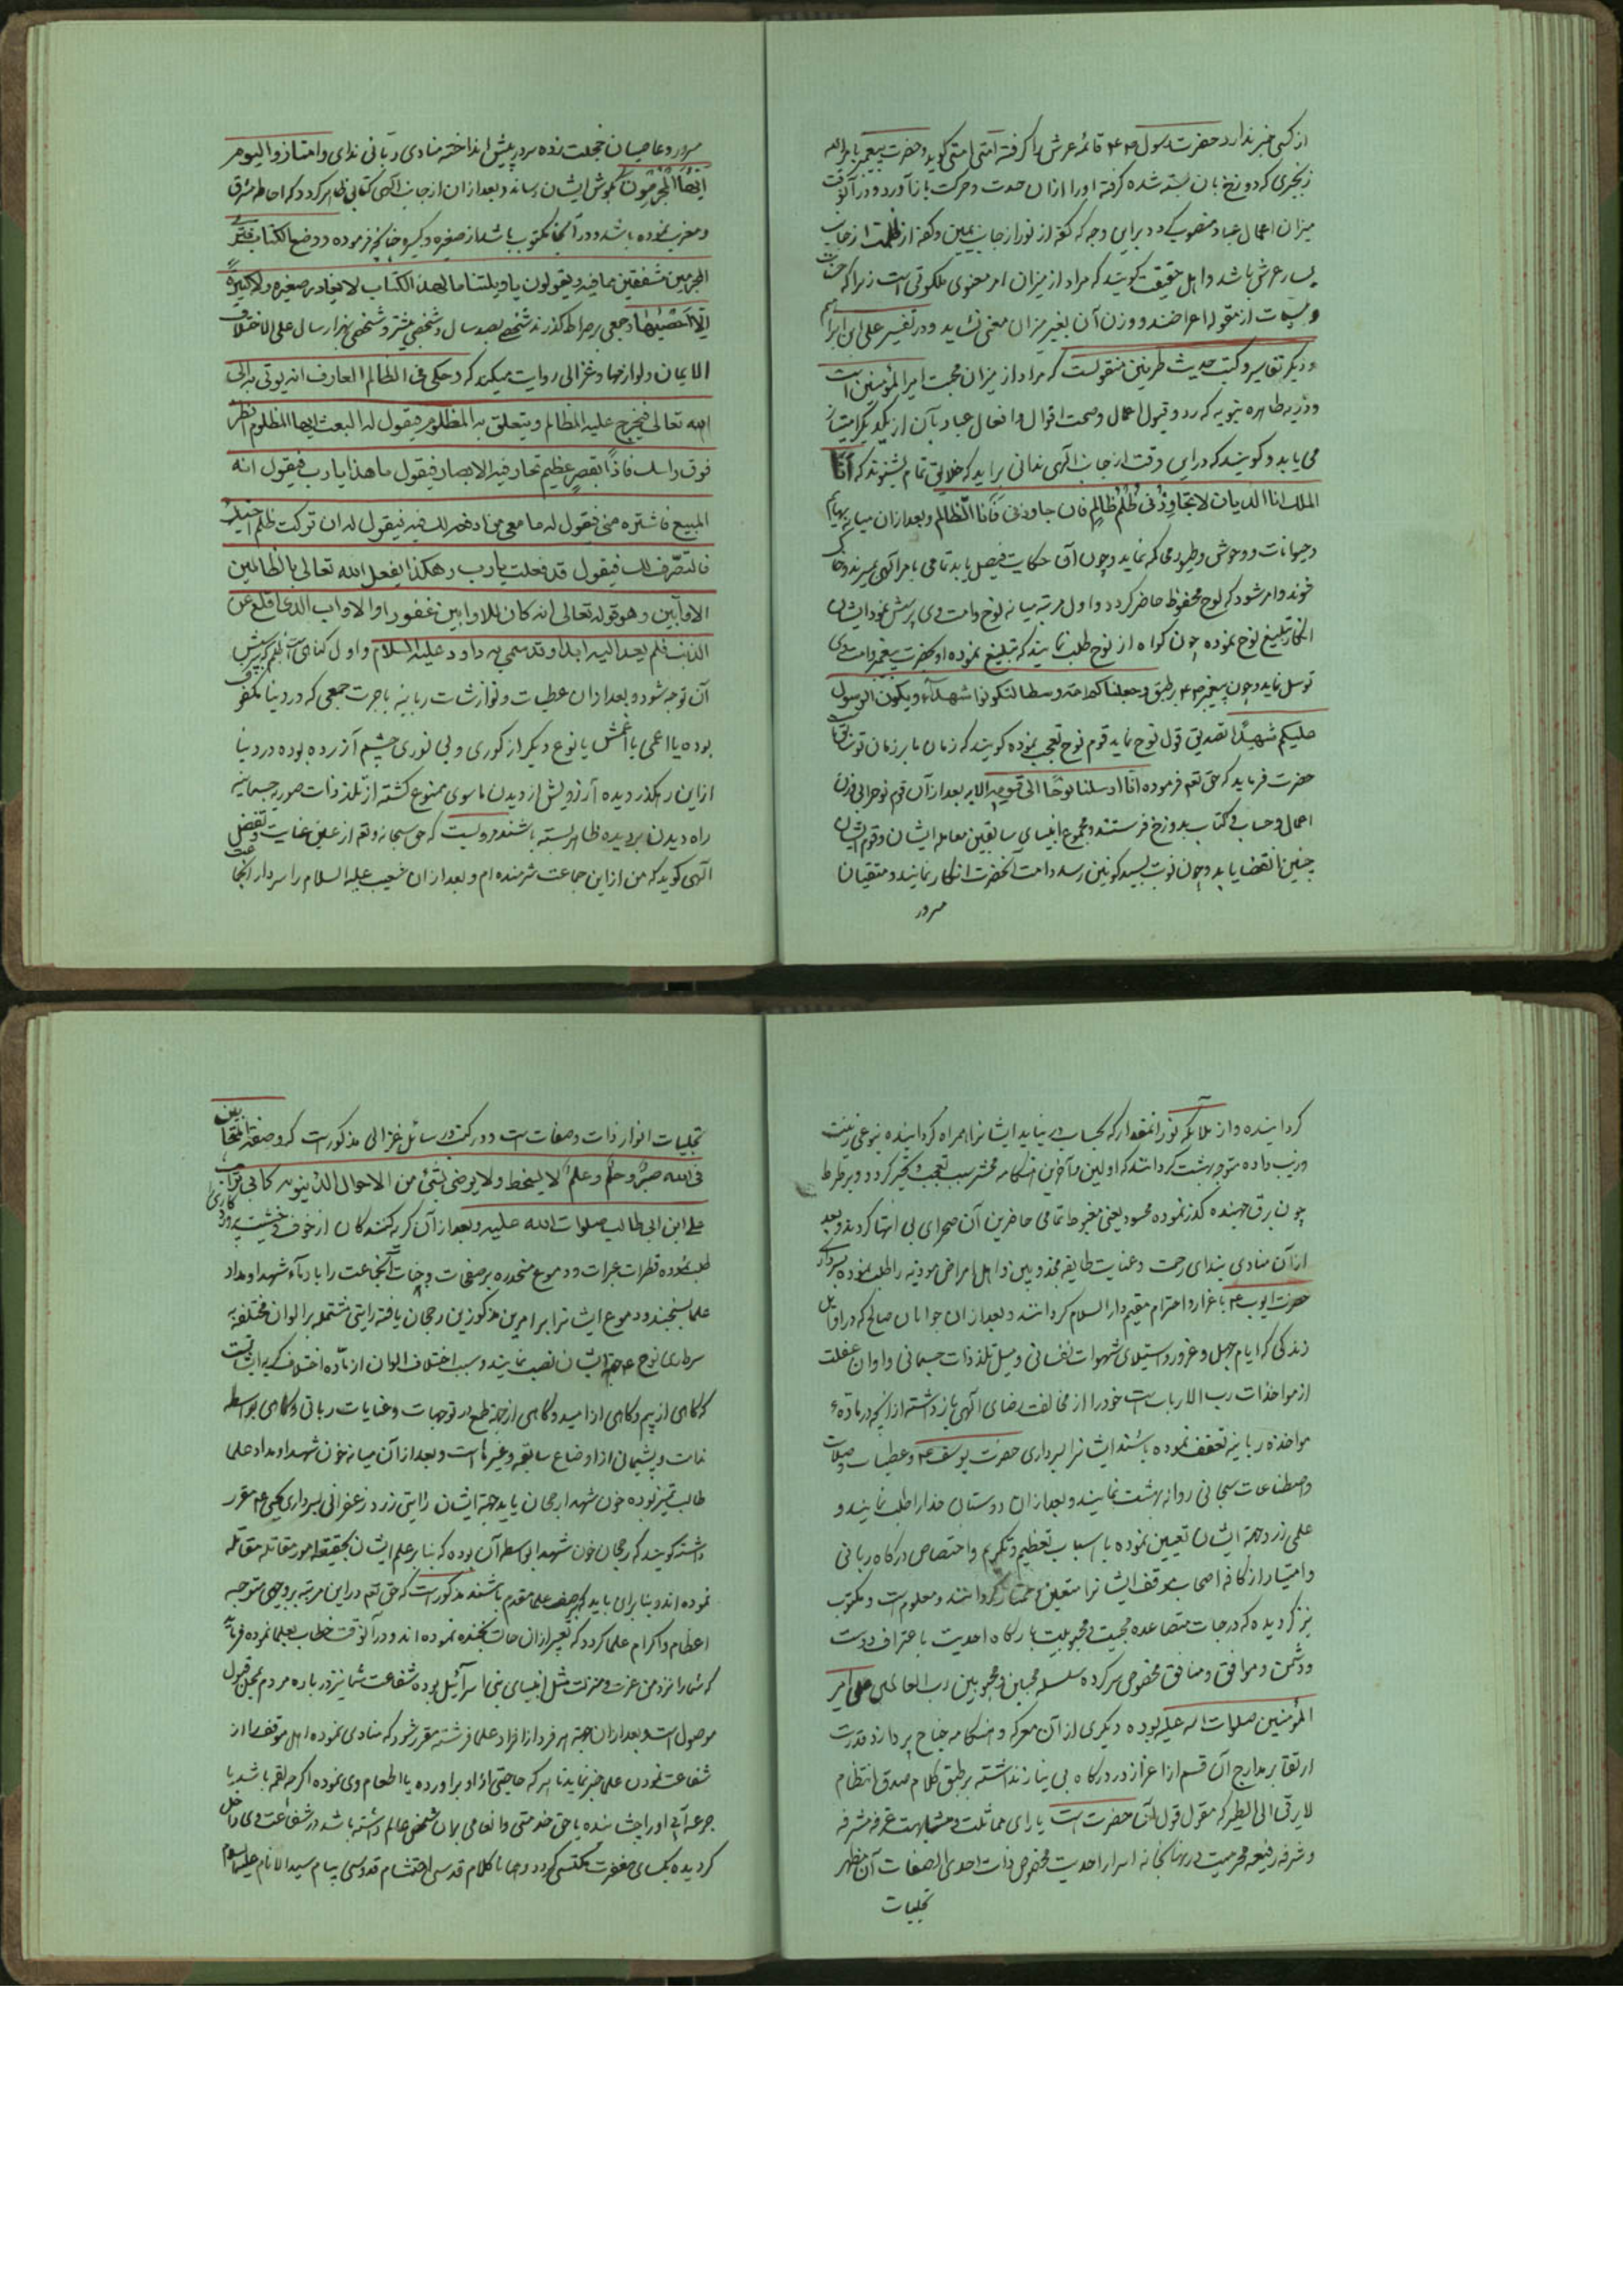 از کسی خبر ندارد حضرت رسول ص ع م قائمه عرش را گرفته امتی امتی گوید و حضرت پیغمبر بامرالله
زنجیری که دوزخ بان بسته شده گرفته او را از ان حدت و حرکت باز آورد و در آنوقت
میزان اعمال عباد منصوب گردد برین وجه که کفه از نور از جانب یمین و کفه از ظلمت از جانب
یسار عرش باشد و اهل حقیقت گویند که مراد از میزان امر معنوی ملکوتی است زیرا که حسنات
و سیئات از مقوله اعراضند و وزن آن بغیر میزان معنی نشاید و در تفسیر علی ابن ابراهیم
و دیگر تفاسیر و کتب حدیث طریفین منقولست که مراد از میزان محبت امیر المؤمنین است
و ذریه طاهره نبویه که رد و قبول اعمال و صحت اقوال و افعال عباد بآن از یکدیگر امتیاز
می یابد و گویند که دراین وقت از جانب الهی ندائی براید که خلایق تمام بشنوند که انا
الملک انا الدیان لا یتجاوزنی ظلم ظالم فان جاوزنی فانا الظالم و بعد از ان میانه بهایم
و حیوانات و وحوش و طیور محاکمه نماید و چون آن حکایت فیصل یابد تمامی بامر الهی بمیرند و خاک
شوند و امر شود که لوح محفوظ حاضر گردد و اول مرتبه میانه نوح و امت وی پرسش نمود ایشان
انکار تبلیغ نوح نموده چون گواه از نوح طلب نمایند که تبلیغ نموده او بحضرت پیغمبر و امت وی
توسل نماید و چون پیغمبر ص ع م بر طبق وجعلناکم امة وسطا لتکونوا شهداء و یکون الرسول
علیکم شهیدا تصدیق قول نوح نماید قوم نوح تعجب نموده گویند که زمان ما بر زمان تو سابق
حضرت فرماید که حق تعم فرموده انا ارسلنا نوحا الی قومه الایه بعد از آن قوم نوح را بی وزن
اعمال و حساب و کتاب بدوزخ فرستند و مجموع انبیای سابقین معامله ایشان و قوم ایشان
چنین انقضا یابد و چون نوبت بسید کونین رسد و امت آنحضرت انکار نمایند و متقیان
مسرور
مسرور و عاصیان خجلت زده سر در پیش انداخته منادی ربانی ندای وامتازوا الیوم
ایها المجرمون بگوش ایشان رساند و بعد از ان از جانب الهی کتابی ظاهر گردد که احاطه مشرق
و مغرب نموده باشد و در آنجا مکتوب باشد از صغیره و کبیره چنانچه فرموده و وضع الکتاب فتری
المجرمین مشفقین مما فیه ویقولون یا ویلتنا مال هذا الکتاب لا یغادر صغیرة ولا کبیرة
الا احصیها و جمعی بر صراط گذرند شخصی بصد سال و شخصی بیشتر و شخصی بهزار سال علی الاختلاف
الایمان و لوازمها و غزالی روایت میکند که و حکی فی الظالم العارف انه یوتی به الی
الله تعالی فیخرج علیه المظالم و یتعلق به المظلوم فیقول له البعث ایها المظلوم انظر
فوق راسک فاذا بقصر عظیم تحار فیه الابصار فیقول ما هذا یارب فیقول انه
المبیع فاشتره منی فیقول له ما معی فیقول له ان ترکت ظلم اخیک
فالتصرف لک فیقول قد فعلت یارب و هکذا یفعل الله تعالی بالظالمین
الاوابین و هو قوله تعالی انه کان للاوابین غفورا و الاواب الذی اقلع عن
الذنب فلم یعد الیه ابدا و قد سمی به داود علیه السلام و اول کتابی
آن توجه شود و بعد از ان عطیات و نوازشات ربانیه باجرت جمعی که در دنیا مکفوف
بوده یا اعمی یا اعمش یا نوع دیگر از کوری و بی نوری چشم آزرده بوده در دنیا
ازاین رهگذر دیده آرزویش از دیدن ماسوی ممنوع گشته از تلذذات صوریه جسمانیه
راه دیدن بر دیده ظاهر بسته باشند مرویست که حق سبحانه و تعم از عین عنایت و تفضل
الهی گوید که من ازاین جماعت شرمنده ام و بعد از ان شعیب علیه السلام را سردار آنجماعت
گردانیده و از ملائکه نور آنمقدار که بحساب در نیاید ایشانرا همراه گردانیده بنوعی زینت
و زیب داده متوجه بهشت گردانند که اولین و آخرین هنگامه محشر سبب تعجب و تحیر گردد و بر صراط
چون برق جهنده گذر نموده محسود یعنی مغبوط تمامی حاضرین آن صحرای بی انتها گردند و بعد
از آن منادی بندای رحمت و عنایت طایفه مجذوبین و اهل امراض موذیه را طلب نموده بسرداری
حضرت ایوب ع م باعزاز و احترام مقیم دار السلام گردانند و بعد از ان جوانان صالح که در اوایل
زندگی که ایام جهل و غرور و استیلای شهوات نفسانی و میل تلذذات جسمانی و اوان غفلت
از مواخذات رب الارباب است خود را از مخالفت رضای الهی باز داشته از آنچه در ماده
مواخذه ربانیه تعفف نموده باشند ایشانرا بسرداری حضرت یوسف ع م و عطیات و صلات
و اصطناعات سبحانی روانه بهشت نمایند و بعد از ان دوستان خدا را طلب نمایند و
علمی زرد جهة ایشان تعیین نموده باسباب تعظیم و تکریم و اختصاص درگاه ربانی
و امتیاز از کافه اصحاب موقف ایشانرا متعین و ممتاز گردانند و معلوم است و مکتوب
نیز گردیده که درجات متصاعده محبیت و محبوبیت بارگاه احدیت باعتراف دوست
و دشمن و موافق و منافق مخصوص سر کرده سلسله محبین و محبوبین رب العالمین علی امیر
المؤمنین صلوات الله علیه بوده دیگری را از آن معرکه و هنگامه جناح پرواز و قدرت
ارتقا بر مدارج آن قسم از اعزاز در درگاه بی نیاز نداشته بر طبق کلام صدق انتظام
لا یرقی الی الطیر که مقول قول آن حضرت است یارای مماثلت و مشابهت غرفه مشرفه
و شرفه رفیعه محرمیت در نهانخانه اسرار احدیت مخصوص ذات احدی الصفات آن مظهر
تجلیات
تجلیات انوار ذات و صفات است و در کتب و رسائل غزالی مذکورست که و صفة المتحابین
فی الله صبر و حلم و علم لا یسخط ولا یرضی بشئ من الاحوال الدنیویه کابی تراب
علی ابن ابی طالب صلوات الله علیه و بعد از آن گریه کنندگان از خوف و خشیت پروردگاری
طلب نموده قطرات عبرات و دموع منحدره بر صفحات وجنات آنجماعت را با دماء شهدا و مداد
علما بسنجند و دموع ایشانرا بر امرین مذکورین رجحان یافته رایتی مشتمله بر الوان مختلفه به
سرداری نوح ع م جهة ایشان نصب نمایند و سبب اختلاف الوان از ماده اختلاف گریه ایشانست
که گاهی از بیم و گاهی از امید و گاهی از جهة طمع در توجهات و عنایات ربانی و گاهی بواسطه
ندامت و پشیمانی از اوضاع سابقه و غیرها است و بعد از آن میانه خون شهدا و مداد علما
طالب تمیز بوده خون شهدا رجحان یابد جهة ایشان رایتی زرد زعفرانی بسرداری یحیی ع م مقرر
داشته گویند که رجحان خون شهدا بواسطه آن بوده که بنابر علم ایشان بحقیقة امور مقاتله مقاتله
نموده اند و بنابراین باید که صف علما مقدم باشند مذکورست که حق تعم دراین مرتبه بر وجهی متوجه
اعظام و اکرام علما گردد که تعبیر از ان حالت بخنده نموده اند و در آنوقت خطاب بعلما نموده فرماید
که شما را نزد من عزت و منزلت مثل انبیای بنی اسرائیل بوده شفاعت شما نیز در باره مردم بمحل قبول
موصول است و بعد از ان جهة هر فرد از افراد علما فرشته مقرر شود که منادی نموده اهل موقف را از
شفاعت نمودن علما خبر نماید تا هر که حاجتی از او براورده یا اطعام وی نموده اگرچه لقمه باشد یا
جرعه آبی او را چشانیده یا حق خدمتی و انعامی بر آن شخص عالم داشته باشد در شفاعت وی داخل
گردیده بکسای مغفرت مکتسی گردد و همانا کلام قدسی احتشام قدوسی پیام سید الانام علیه السلام